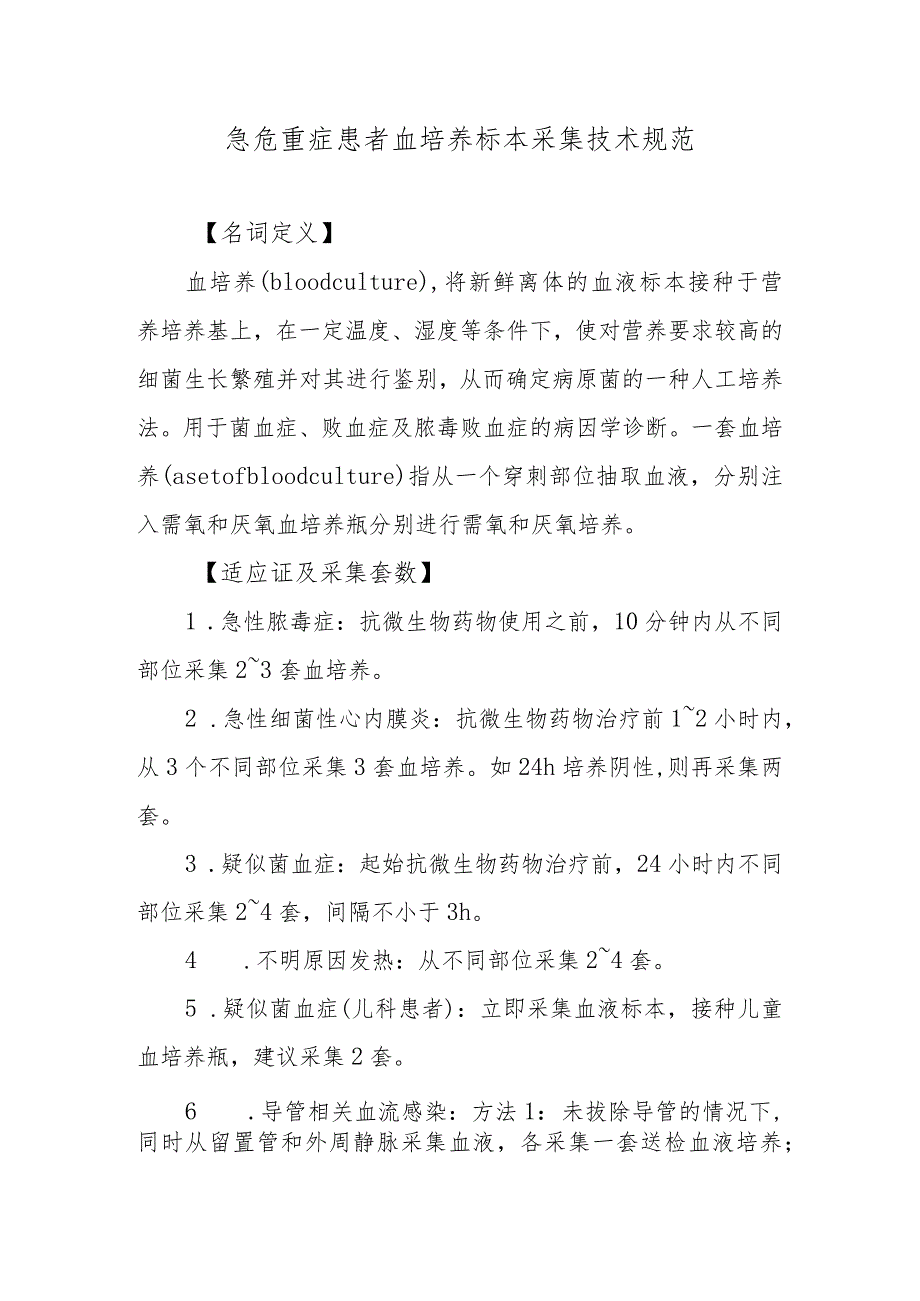 急危重症患者血培养标本采集技术规范
【名词定义】
血培养(bloodculture),将新鲜离体的血液标本接种于营
养培养基上，在一定温度、湿度等条件下，使对营养要求较高的
细菌生长繁殖并对其进行鉴别，从而确定病原菌的一种人工培养
法。用于菌血症、败血症及脓毒败血症的病因学诊断。一套血培
养(asetofbloodculture)指从一个穿刺部位抽取血液，分别注
入需氧和厌氧血培养瓶分别进行需氧和厌氧培养。
【适应证及采集套数】
1 .急性脓毒症：抗微生物药物使用之前，10分钟内从不同
部位采集2~3套血培养。
2 .急性细菌性心内膜炎：抗微生物药物治疗前1~2小时内，
从3个不同部位采集3套血培养。如24h培养阴性,则再采集两
套。
3 .疑似菌血症：起始抗微生物药物治疗前，24小时内不同
部位采集2~4套，间隔不小于3h。
4 .不明原因发热：从不同部位采集2~4套。
5 .疑似菌血症(儿科患者)：立即采集血液标本，接种儿童
血培养瓶，建议采集2套。
6 .导管相关血流感染：方法1：未拔除导管的情况下,
同时从留置管和外周静脉采集血液，各采集一套送检血液培养；